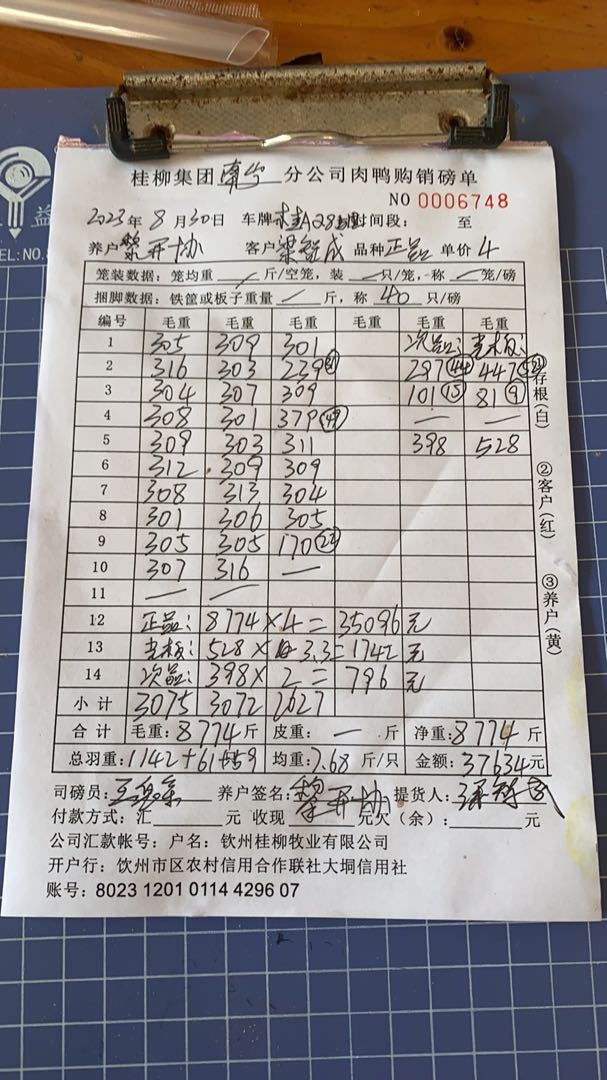 益
TEL:NO.8
桂柳集团 南宁 分公司肉鸭购销磅单
NO 0006748
2023年 8月30日 车牌 桂A28 时间段: 至
养户 黎开协 客户 品种 正品 单价 4
笼装数据: 笼均重 / 斤/空笼, 装 — 只/笼, 称 / 笼/磅
捆脚数据: 铁筐或板子重量 — 斤, 称 40 只/磅
编号 毛重 毛重 毛重 毛重 毛重 毛重
1 305 309 301 次品: 老板:
2 316 303 239(31) 297(44) 447(52)
3 304 307 309 101(15) 81(9)
4 308 301 379(49) — —
5 309 303 311 398 528
6 312 309 309
7 308 313 304
8 301 306 305
9 305 305 170(22)
10 307 316 —
11 — —
12 正品: 8774×4=35096元
13 老板: 528× 3.3=1742元
14 次品: 398×2=796元
小计 3075 3072 2627
合计 毛重: 8774斤 皮重: — 斤 净重: 8774 斤
总羽重: 1142+61+59 均重: 7.68 斤/只 金额: 37634元
司磅员: 养户签名: 黎开协 提货人:
付款方式: 汇 元 收现 元欠(余): 元
公司汇款帐号: 户名: 钦州桂柳牧业有限公司
开户行: 饮州市区农村信用合作联社大垌信用社
账号: 8023 1201 0114 4296 07
存根(白)
②客户(红)
③养户(黄)